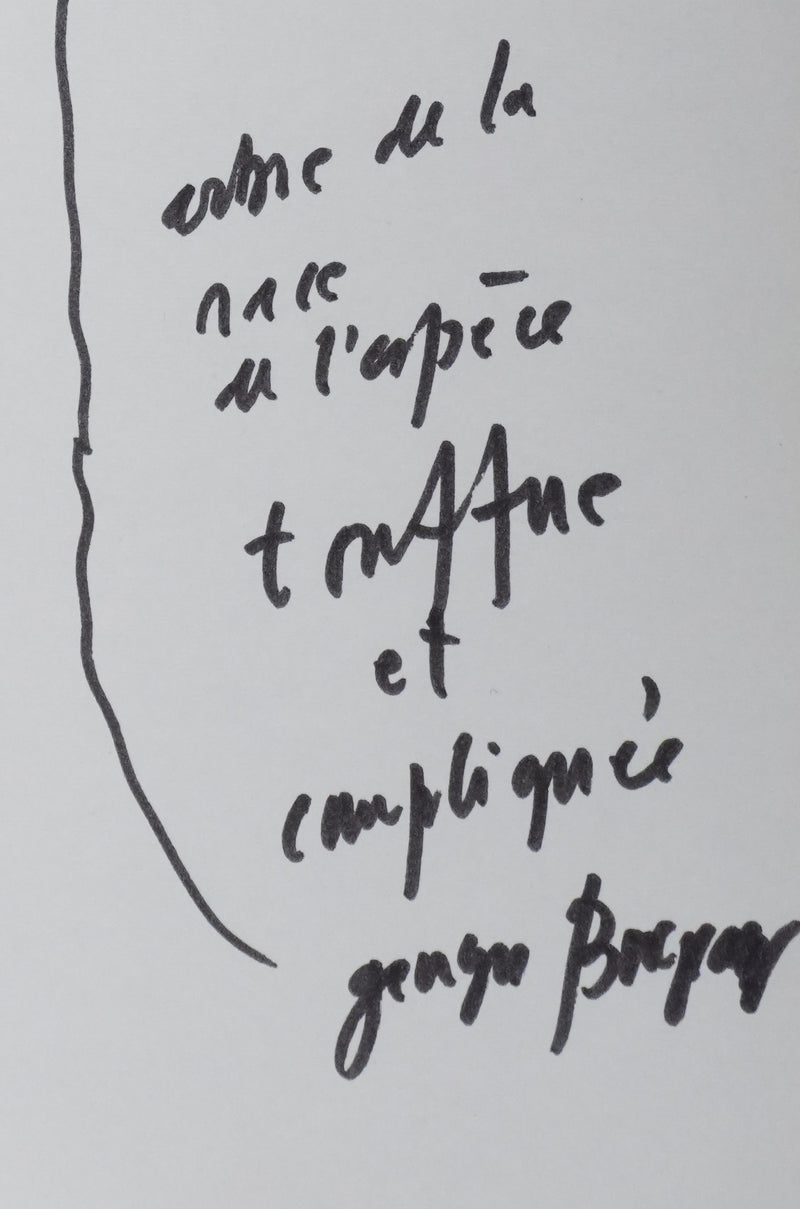 arbre de la
race
de l'espèce
touffue
et
compliquée
georges